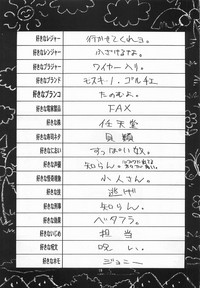 好きなレジャー 行かせてくれヨ。
好きなレンジャー ふざけるなよ。
好きなブラジャー ワイヤー入り。
好きなブランド モスキーノ、ゴルチエ
好きなブランコ たのむよ。
好きな電家製品 FAX
好きな株 任天堂
好きな寿司ネタ 貝類
好きなにおい すっぱい奴。
好きな声優 知らん。
好きな怪奇現象 小人さん。
好きな技 逃げ
好きな刑事 知らん。
好きな効果 ベタフラ。
好きないじめ 担当
好きな呪文 呪い。
好きなホモ ジョニー